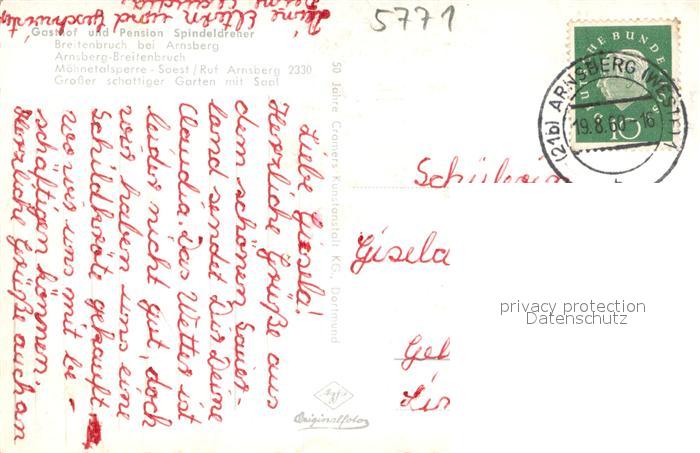 Gasthof und Pension Spindeldreher
Breitenbruch bei Arnsberg
Arnsberg-Breitenbruch
Möhnetalsperre - Soest / Ruf Arnsberg 2330
Großer schattiger Garten mit Saal
5771
DEUTSCHE BUNDESPOST
10
(21b) ARNSBERG (WESTF)
19.8.60-16
b
50 Jahre Cramers Kunstanstalt KG., Dortmund
Liebe Gisela!
Herzliche Grüße aus
dem schönen Sauer-
land sendet Dir Deine
Claudia. Das Wetter ist
leider nicht gut, doch
wir haben uns eine
Schildkröte gekauft,
wo wir uns mit be-
schäftigen können.
Herzliche Grüße auch an
Deine Eltern und Geschwister
Deine Claudia
Schülerin
Gisela
Agfa
Originalfoto
privacy protection
Datenschutz